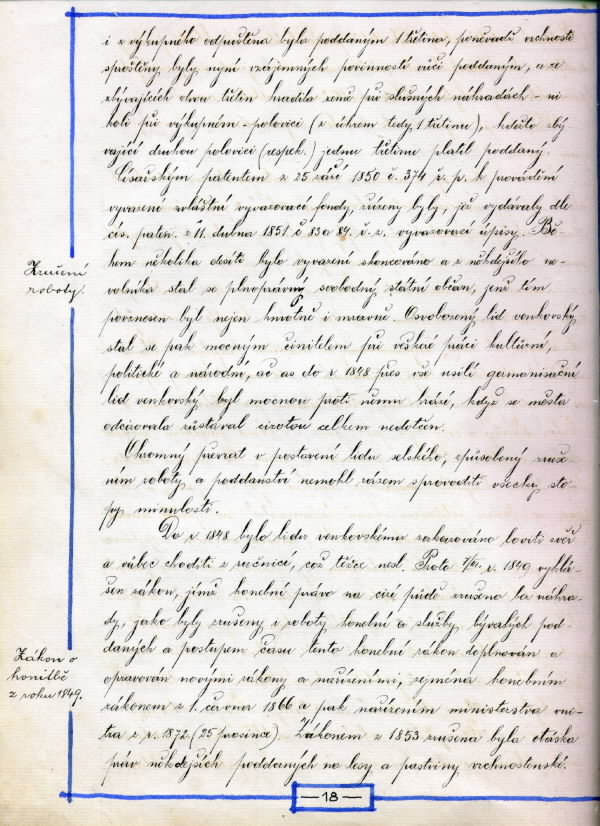 i z výkupného odpuštěna byla poddaným 1 třetina, poněvadž vrchnosti
sproštěny byly nyní vzájemných povinností vůči poddaným, a ze
zbývajících dvou třetin hradila země při slušných náhradách – ni
koli při výkupném – polovici (z úhrem tedy 1 třetinu), kdežto zbý
vající druhou polovici (respek.) jednu třetinu platil poddaný.
Císařským patentem z 25 září 1850 č. 374 ř. z. k provádění
vyvazení zvláštní vyvazovací fondy, zřízeny byly, jež vydávaly dle
cís. paten. z 11. dubna 1851 č 83 a 84. ř. z. vyvazovací úpisy. Bě-
hem několika desíti bylo vyvazení skoncováno a z někdejšího ne-
Zrušení
roboty.
volníka stal se plnoprávný svobodný státní občan, jenž tím
povznesen byl nejen hmotně i mravně. Osvobozený lid venkovský
stal se pak mocným činitelem při veškeré práci kulturní,
politické a národní, ač as do r 1848 přes vše úsilí germanisační
lid venkovský byl mocnou proti němu hrází, když se města
odcizovala zůstával cizotou celkem nedotčen.
Ohromný převrat v postavení lidu selského, způsobený zruše
ním roboty a poddanství nemohl rázem sprovoditi všecky sto-
py minulosti.
Do r. 1848 bylo lidu venkovskému zakazováno loviti zvěř
a vůbec choditi z ručnicí, což těžce nesl. Proto 7/III. r. 1849 vyhlá-
šen zákon, jímž honební právo na cizí půdě zrušeno bez náhra-
dy, jako byly zrušeny i roboty honební a služby bývalých pod-
Zákon o
honitbě
z roku 1849.
daných a postupem času tento honební zákon doplňován a
opravován novými zákony a nařízeními, zejména honebním
zákonem z 1. června 1866 a pak nařízením ministerstva vni-
tra z r. 1872 (25 prosince). Zákonem z 1853 zrušena byla otázka
práv někdejších poddaných na lesy a pastviny vrchnostenské.
– 18 –